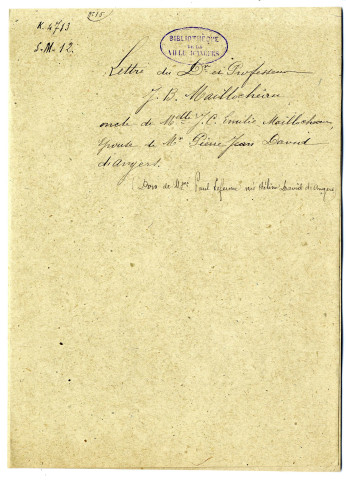 K. 4713
S-M-12.
BIBLIOTHÈQUE
DE LA
VILLE D'ANGERS
Lettre du Dr et Professeur
J. B. Maillocheau
oncle de Melle J. C. Emilie Maillocheau,
épouse de Mr Pierre Jean David
d'Angers.
(Don de Mme Paul Leferme née Hélène David d'Angers